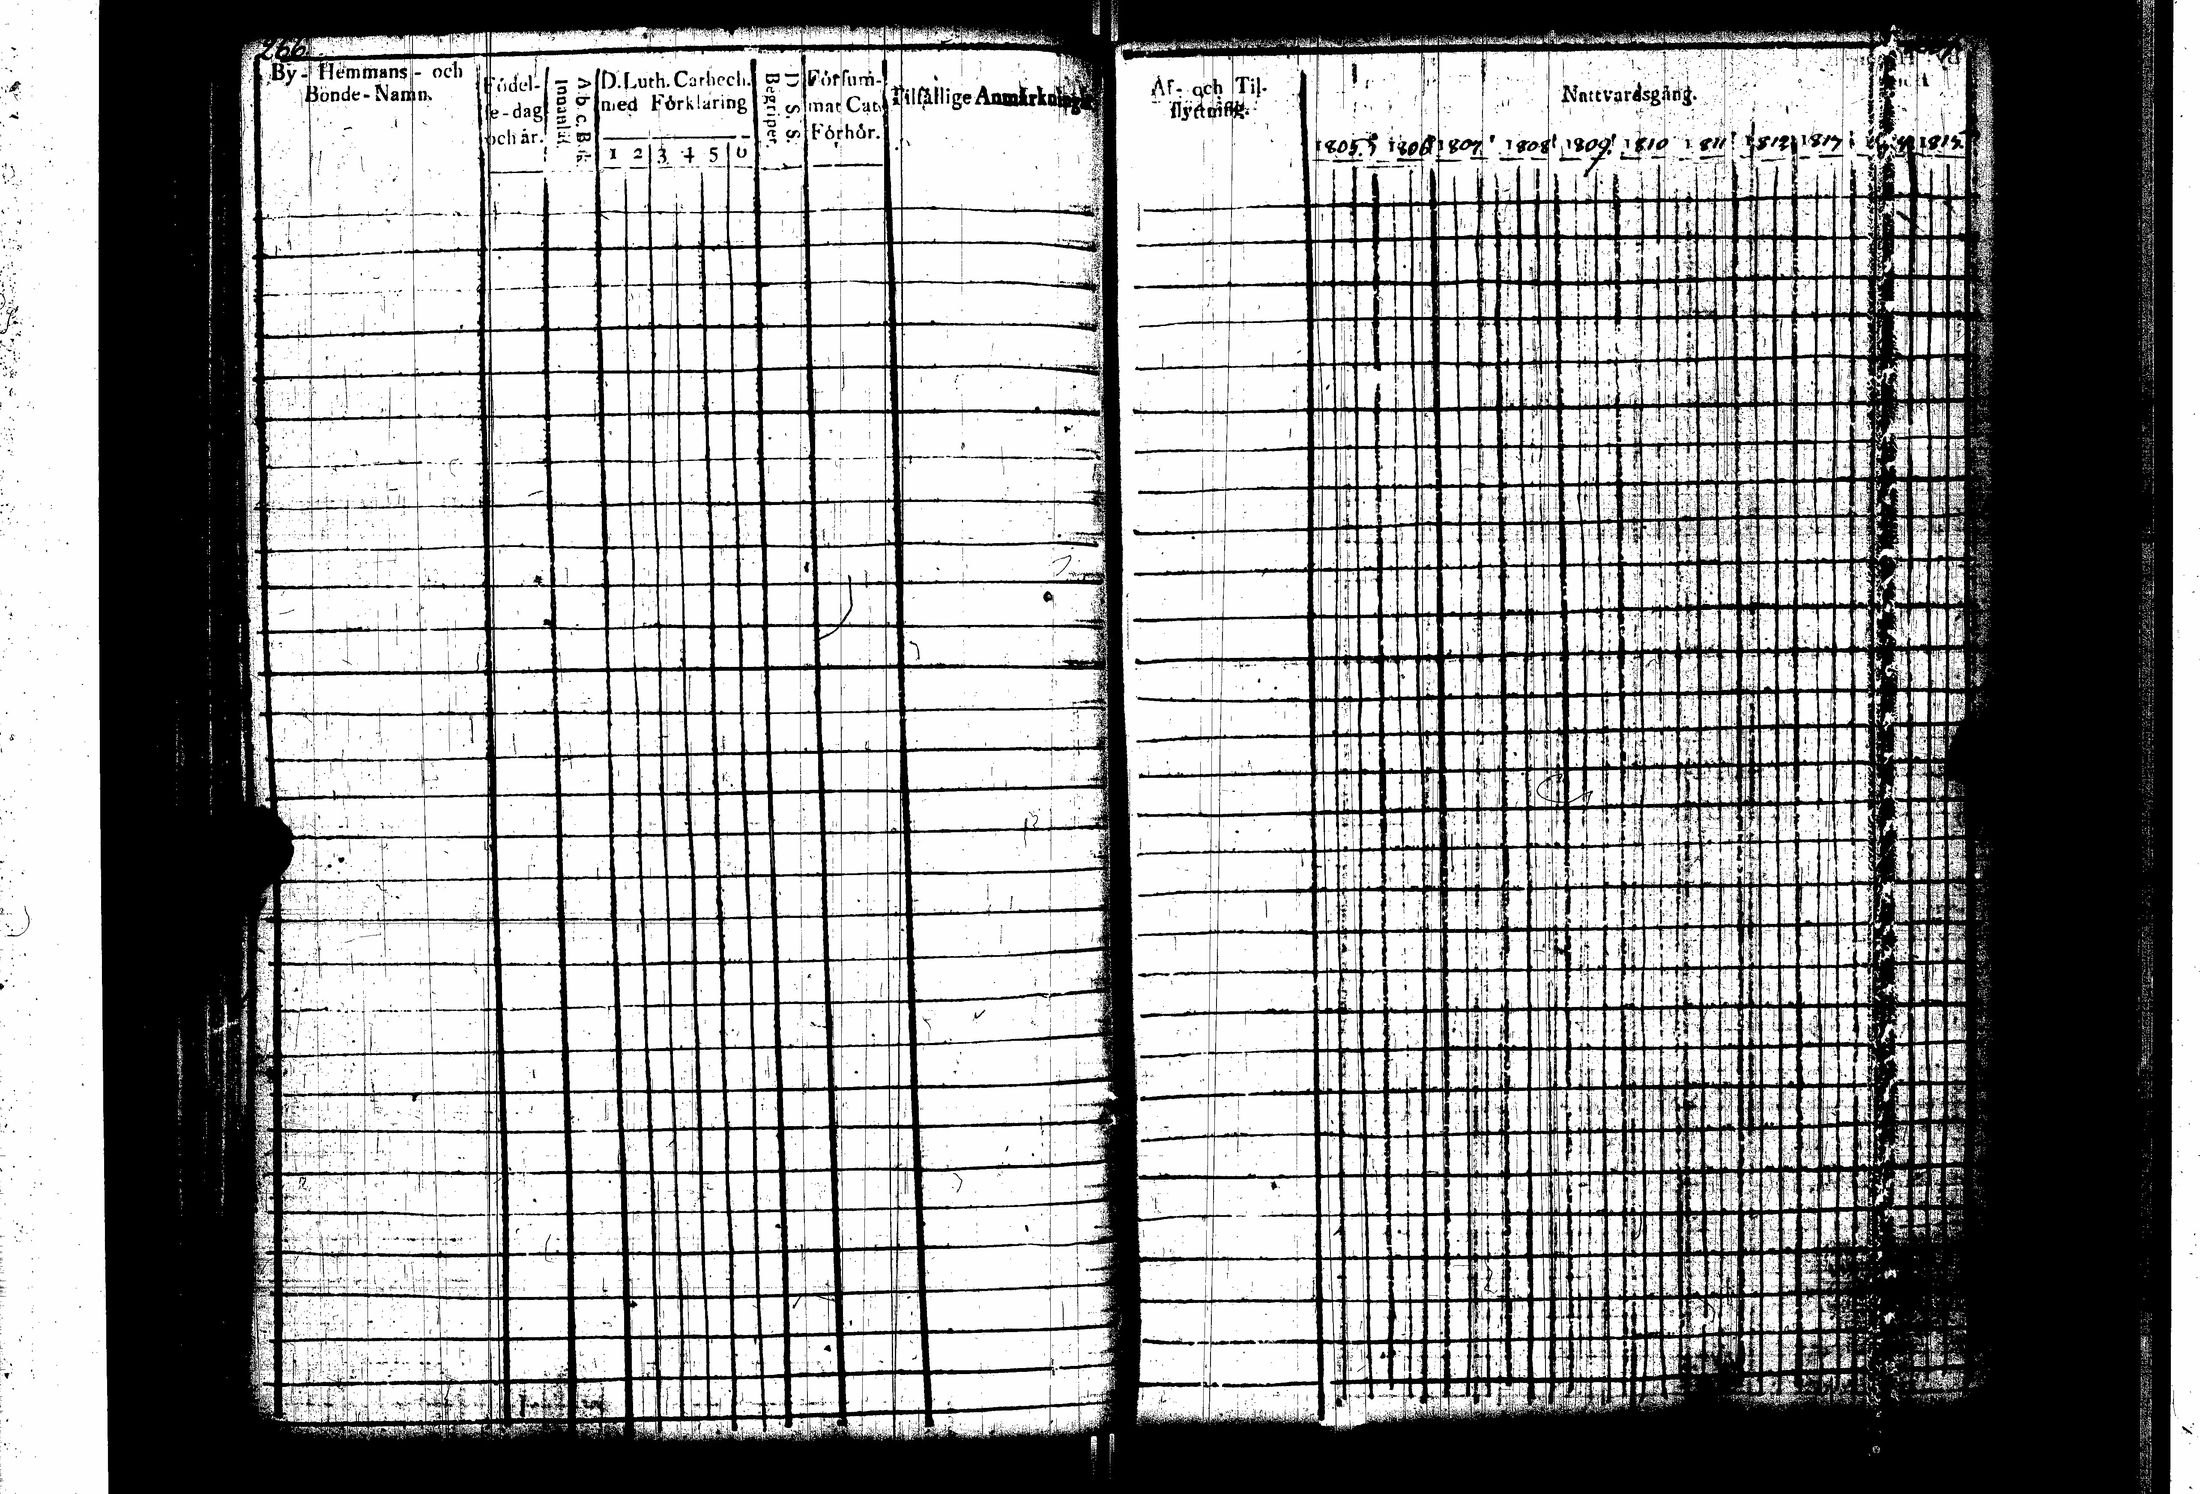 266
By - Hemmans - och
Bonde - Namn.
Födel-
se-dag
och år.
A b c Bok
Innanläs.
D. Luth. Cathech.
med Förklaring
1 2 3 4 5 6
D. S. S.
Begriper.
Försum-
mat Cat.
Förhör.
Tilfällige Anmärkningar
Af- och Til-
flyttning.
Nattvardsgång.
1805 1806 1807 1808 1809 1810 1811 1812 1814 1815